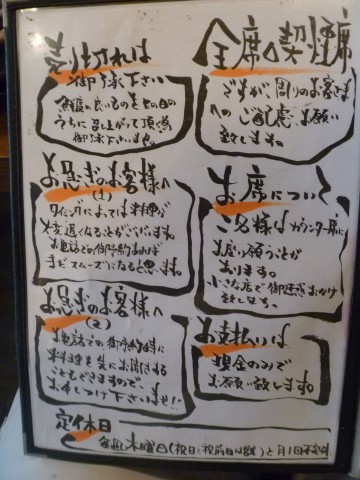 全席喫煙席
ですが、周りのお客さま
へのご配慮お願い
致します。
売り切れは
御了承下さい
鮮度の良いものをその日の
うちに召し上がって頂く為
御了承下さいませ。
お席について
二名様はカウンター席に
お座り願うことが
あります。
小さな店で御迷惑おかけ
致します。
お急ぎのお客様へ
(1)
タイミングによっては料理が
大変遅くなることがございます。
お電話での御予約あれば
まだスムーズになると思います。
お支払いは
現金のみで
お願い致します。
お急ぎのお客様へ
(2)
お電話での御予約時に
お料理を先にお聞きする
こともできますので
お申しつけ下さいませ!!
定休日
毎週木曜日(祝日、祝前日は営業)と月1回不定休